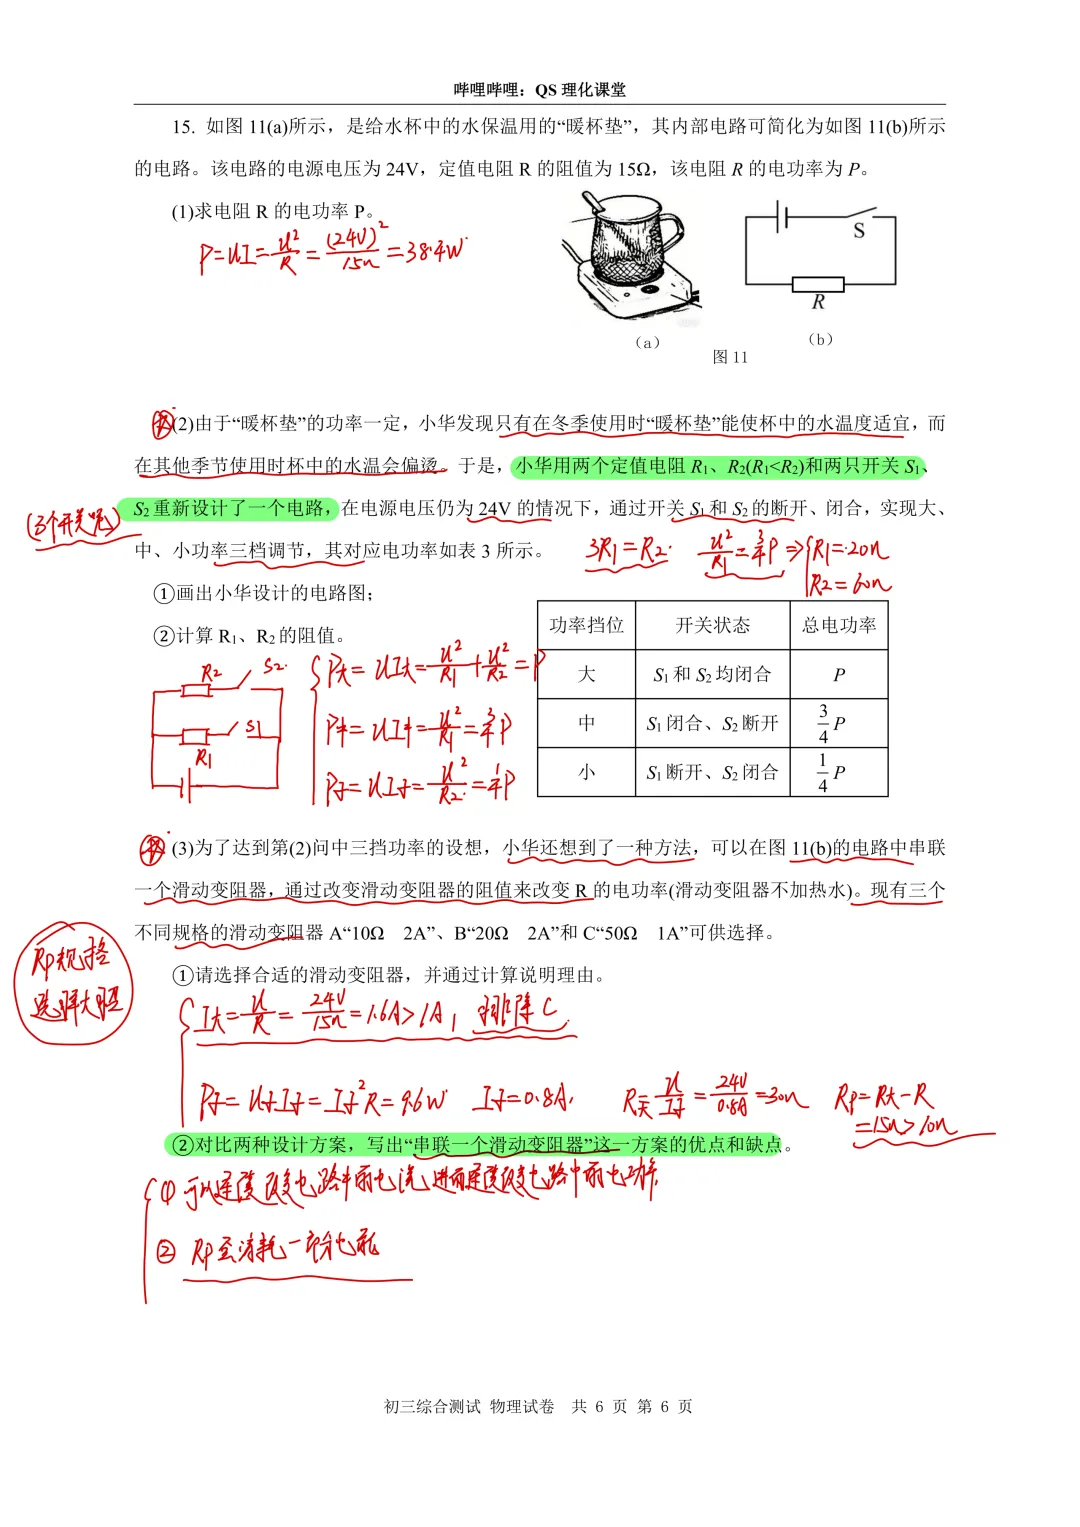 哔哩哔哩：QS 理化课堂
15. 如图 11(a)所示，是给水杯中的水保温用的“暖杯垫”，其内部电路可简化为如图 11(b)所示
的电路。该电路的电源电压为 24V，定值电阻 R 的阻值为 15Ω，该电阻 R 的电功率为 P。
(1)求电阻 R 的电功率 P。
P=UI=U²/R=(24V)²/15Ω=38.4W
S
R
（a）
（b）
图 11
(2)由于“暖杯垫”的功率一定，小华发现只有在冬季使用时“暖杯垫”能使杯中的水温度适宜，而
在其他季节使用时杯中的水温会偏烫。于是，小华用两个定值电阻 R₁、R₂(R₁<R₂)和两只开关 S₁、
S₂ 重新设计了一个电路，在电源电压仍为 24V 的情况下，通过开关 S₁ 和 S₂ 的断开、闭合，实现大、
(3个开关呢)
中、小功率三档调节，其对应电功率如表 3 所示。
3R₁=R₂. U²/R₁=3/4P⇒{R₁=20Ω
R₂=60Ω
①画出小华设计的电路图；
②计算 R₁、R₂ 的阻值。
功率挡位 开关状态 总电功率
大 S₁ 和 S₂ 均闭合 P
中 S₁ 闭合、S₂ 断开 3/4 P
小 S₁ 断开、S₂ 闭合 1/4 P
R₂ S₂
S1
R₁
P大=UI大=U²/R₁+U²/R₂=P
P中=UI中=U²/R₁=3/4P
P小=UI小=U²/R₂=1/4P
(3)为了达到第(2)问中三挡功率的设想，小华还想到了一种方法，可以在图 11(b)的电路中串联
一个滑动变阻器，通过改变滑动变阻器的阻值来改变 R 的电功率(滑动变阻器不加热水)。现有三个
不同规格的滑动变阻器 A“10Ω 2A”、B“20Ω 2A”和 C“50Ω 1A”可供选择。
Rp规格
①请选择合适的滑动变阻器，并通过计算说明理由。
I大=U/R=24V/15Ω=1.6A>1A，排除C.
P小=U小I小=I小²R=9.6W I小=0.8A， R大=U/I小=24V/0.8A=30Ω Rp=R大-R
=15Ω>10Ω
②对比两种设计方案，写出“串联一个滑动变阻器”这一方案的优点和缺点。
① 可以连续改变电路中的电流，进而连续改变电路中的电功率，
② Rp会消耗一部分电能
初三综合测试 物理试卷 共 6 页 第 6 页